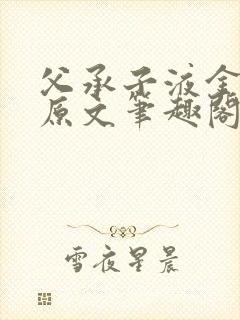 父承子液金
原文笔趣阁
雪夜星晨